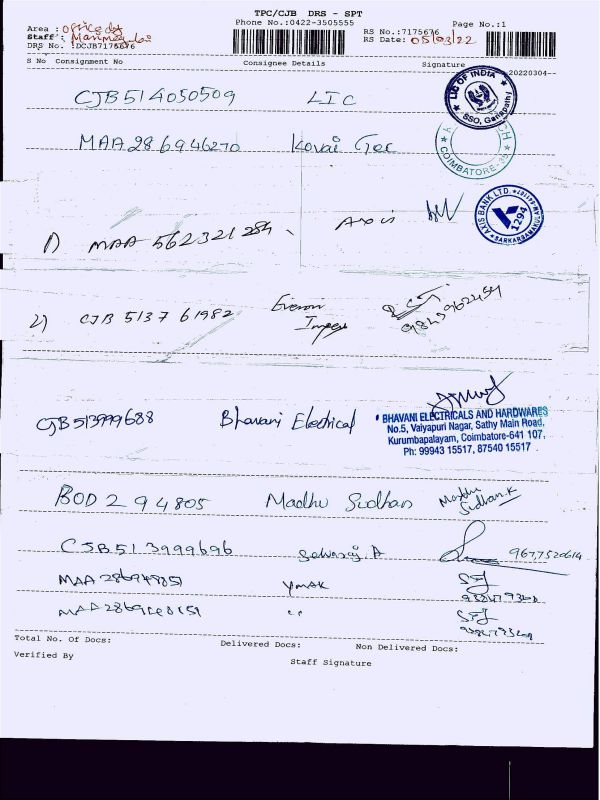 TPC/CJB DRS - SPT
Phone No.:0422-3505555
Page No.:1
Area : office dy
RS No.:7175676
Staff :
RS Date: 05/03/22
DRS No. :DCJB7175676
S No Consignment No Consignee Details Signature
20220304--
CJB514050509 LIC
LIC OF INDIA
SSO, Ganapathi
MAA 286946270 Kovai Tec
COIMBATORE-35
1) MAA 562321284 Axis
AXIS BANK LTD.
1294
2) CJB 513761982
9843962454
CJB513999688 Bhavani Electrical
BHAVANI ELECTRICALS AND HARDWARES
No.5, Vaiyapuri Nagar, Sathy Main Road,
Kurumbapalayam, Coimbatore-641 107.
Ph: 99943 15517, 87540 15517
BOD294805 Madhu Sudhan Madhu
Sudhan.K
CJB513999696 Selvaraj.A 9677520614
MAA 286948051 YMAK
MAA
Total No. Of Docs: Delivered Docs: Non Delivered Docs:
Verified By Staff Signature